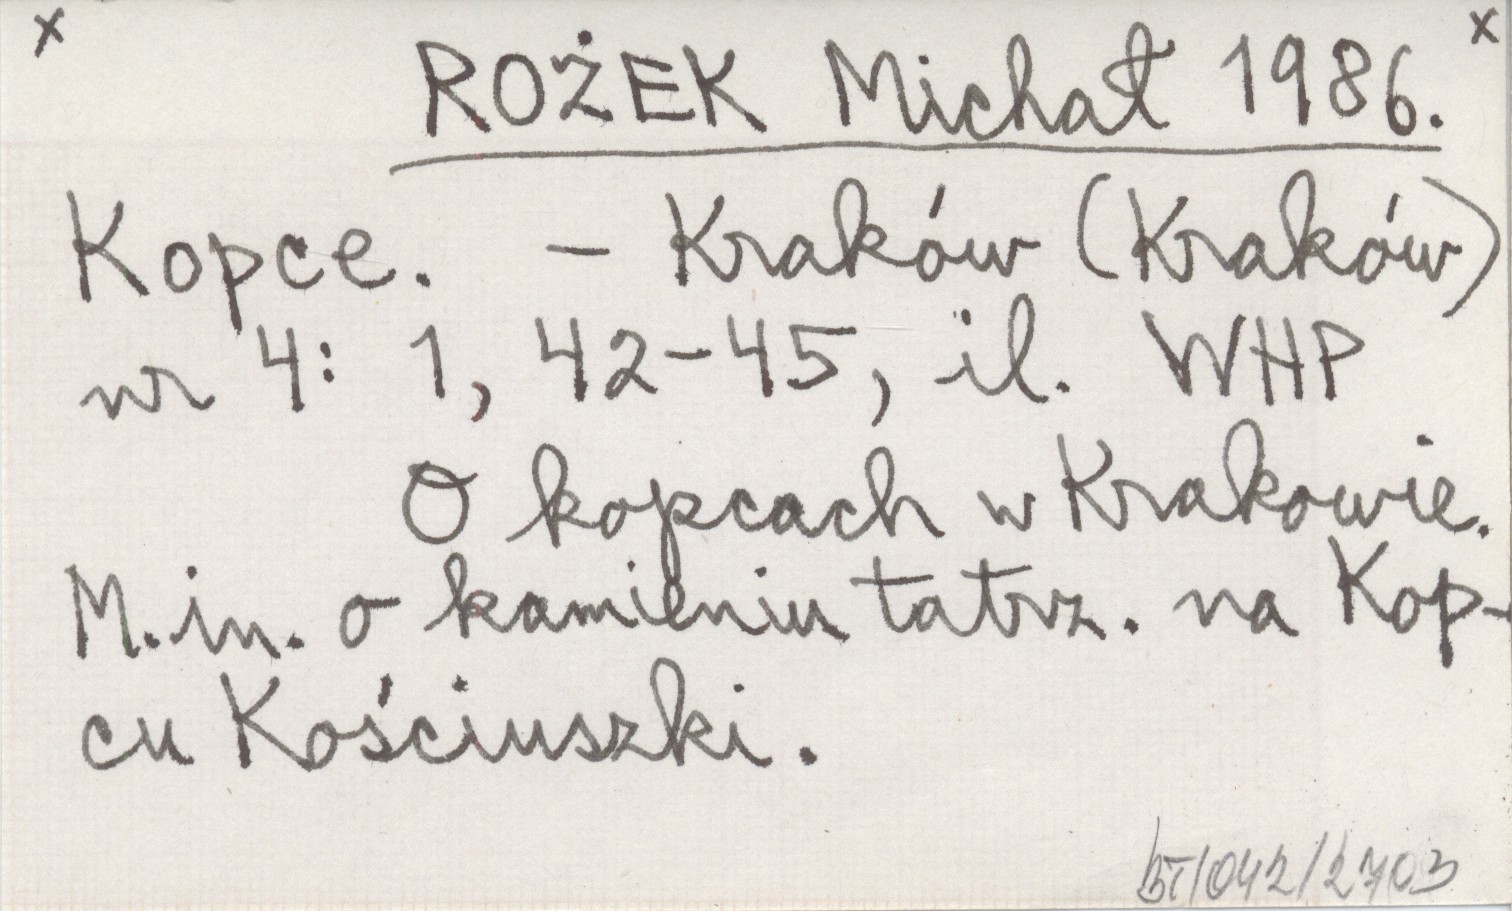 x ROŻEK Michał 1986. x
Kopce. – Kraków (Kraków)
nr 4: 1, 42–45, il. WHP
O kopcach w Krakowie.
M.in. o kamieniu tatrz. na Kop-
cu Kościuszki.
BT/042/2703